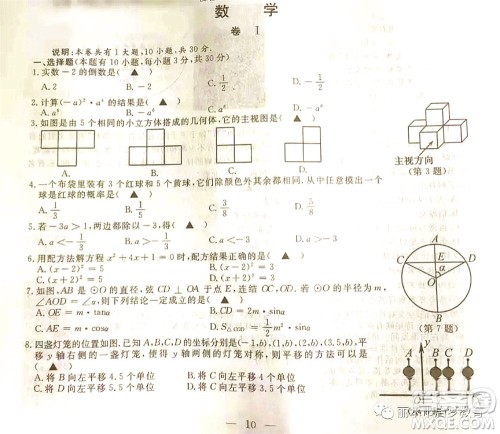 数 学
卷 I
说明:本卷共有1大题,10小题,共30分.
一、选择题(本题有10小题,每小题3分,共30分)
1.实数-2的倒数是( ▲ )
A.2 B.-2 C.1/2 D.-1/2
2.计算(-a)²·a⁴的结果是( ▲ )
3.如图是由5个相同的小立方体搭成的几何体,它的主视图是( ▲ )
A. B. C. D.
主视方向
(第3题)
4.一个布袋里装有3个红球和5个黄球,它们除颜色外其余都相同.从中任意摸出一个
球是红球的概率是( ▲ )
A.1/3 B.1/5 C.3/8 D.5/8
5.若-3a>1,两边都除以-3,得( ▲ )
A.a<-1/3 B.a>-1/3 C.a<-3 D.a>-3
6.用配方法解方程x²+4x+1=0时,配方结果正确的是( ▲ )
A.(x-2)²=5 B.(x-2)²=3
C.(x+2)²=5 D.(x+2)²=3
7.如图,AB是⊙O的直径,弦CD⊥OA于点E,连结OC,OD.若⊙O的半径为m,
∠AOD=∠α,则下列结论一定成立的是( ▲ )
A.OE=m·tanα B.CD=2m·sinα
C.AE=m·cosα D.S△COD=1/2m²·sinα
A
C E D
α
O
B
(第7题)
8.四盏灯笼的位置如图.已知A,B,C,D的坐标分别是(-1,b),(1,b),(2,b),(3.5,b),平
移y轴右侧的一盏灯笼,使得y轴两侧的灯笼对称,则平移的方法可以是
( ▲ )
A.将B向左平移4.5个单位 B.将C向左平移4个单位
C.将D向左平移5.5个单位 D.将C向左平移3.5个单位
y
A B C D
— 10 —